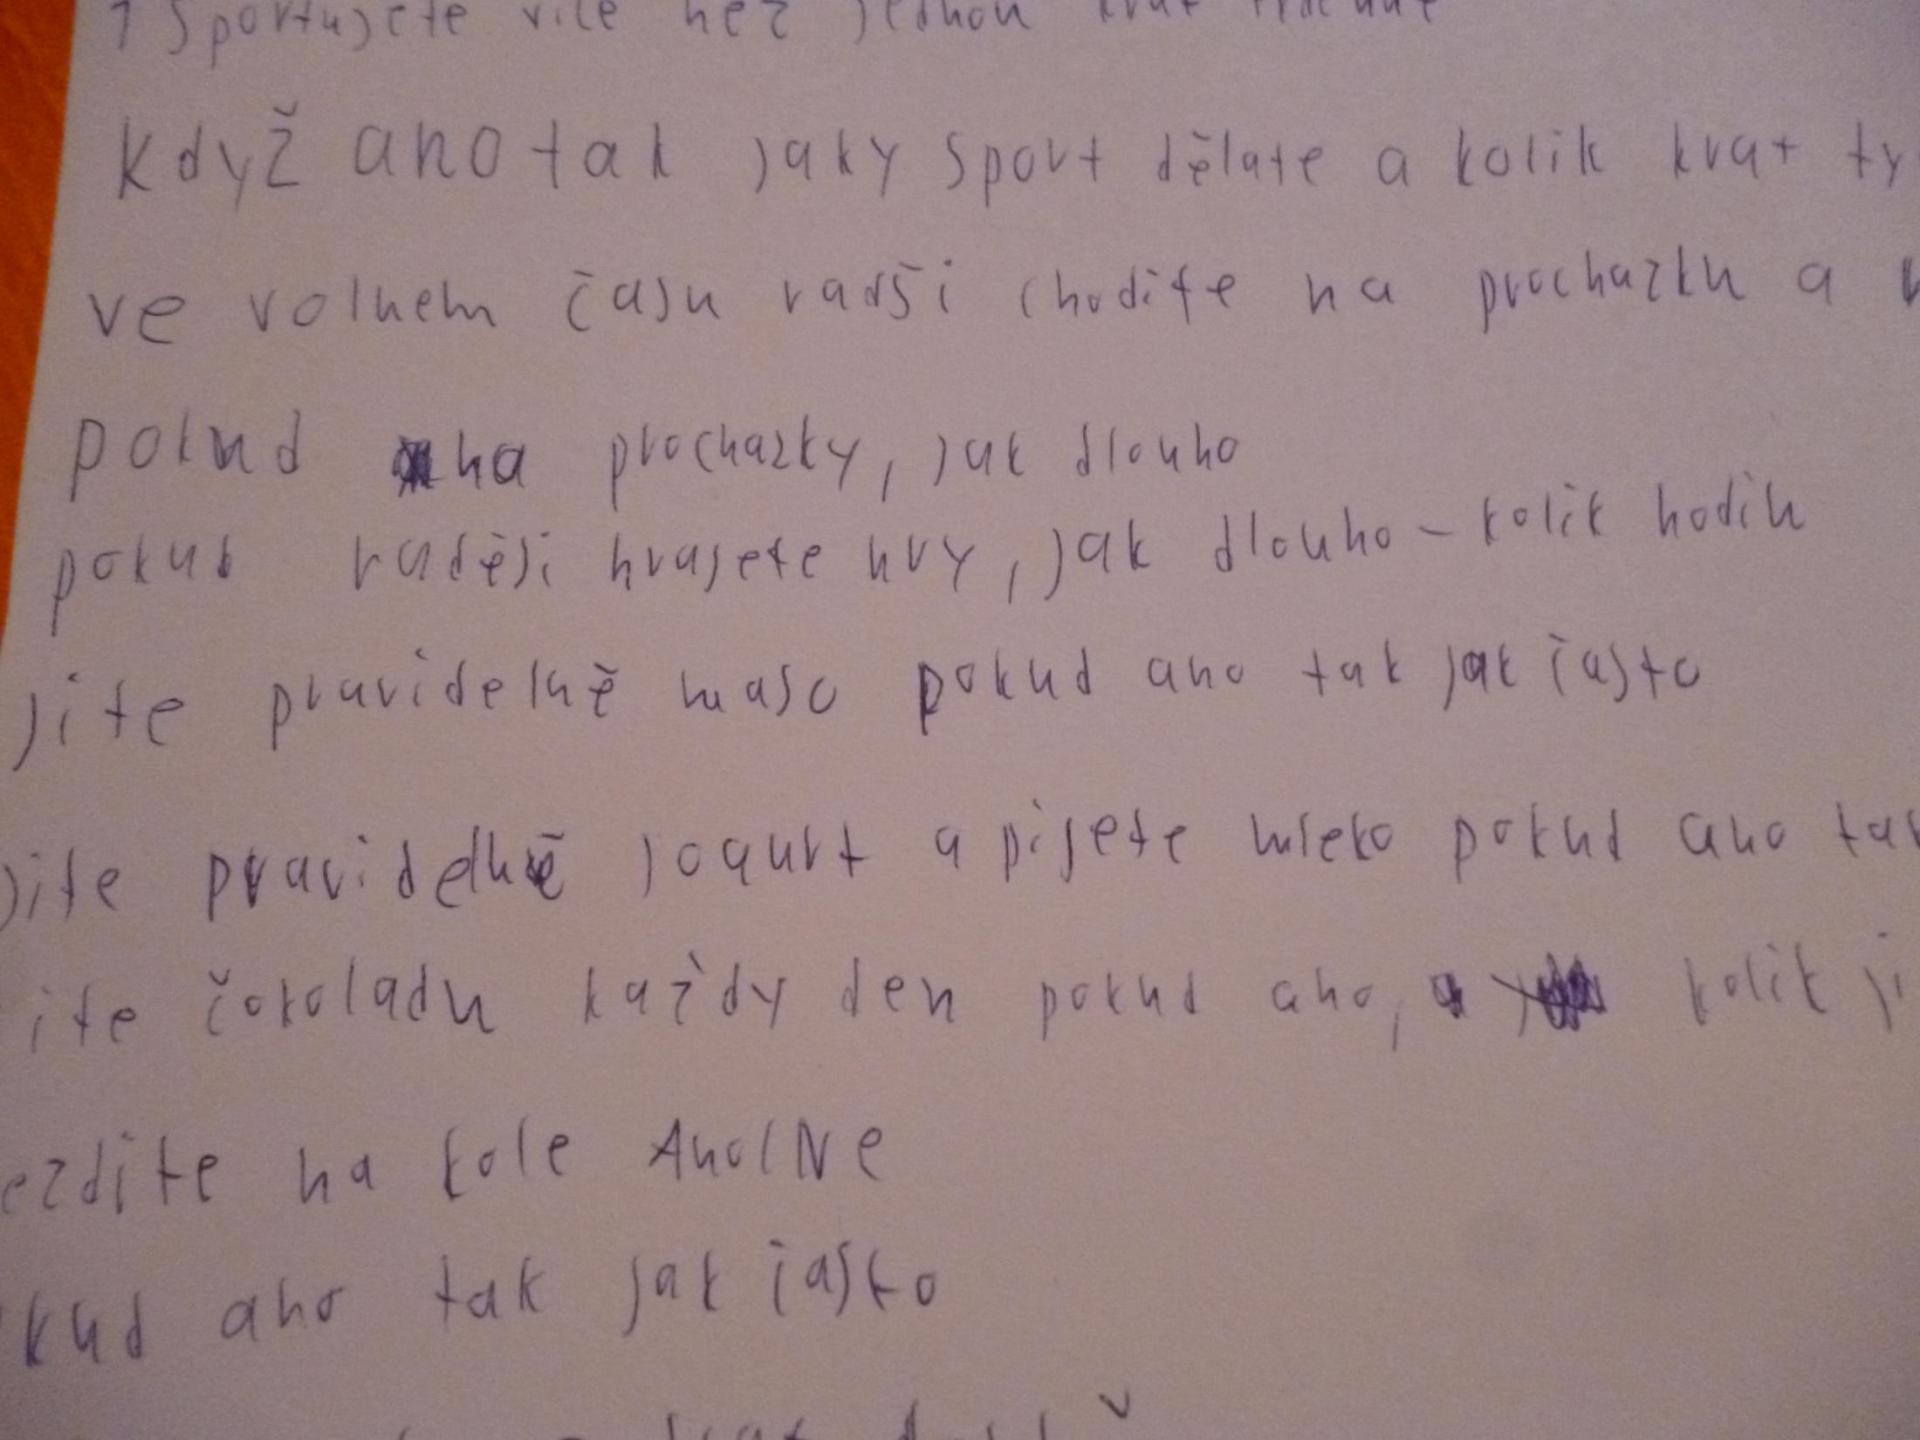 1 Sportujete více než jednou krat
Když ano tak jaky sport dělate a kolik krat ty
ve volnem času radši chodite na prochazku a
pokud na prochazky, jak dlouho
pokud raděsi hrajete hry, jak dlouho - kolik hodin
jite pravidelně maso pokud ano tak jak často
jite pravidelně jogurt a pijete mleko pokud ano tak
ite čokoladu každy den pokud ano, kolik ji
ezdite na kole Ano/Ne
kud ano tak jak často